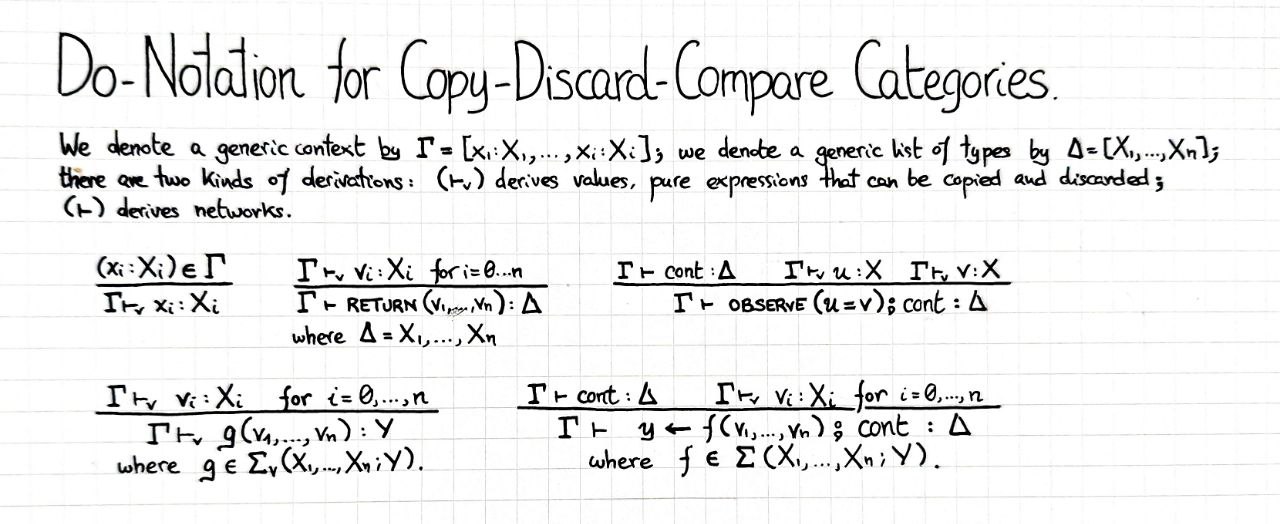 Do-Notation for Copy-Discard-Compare Categories.
We denote a generic context by Γ = [x₁:X₁,...,xᵢ:Xᵢ]; we denote a generic list of types by Δ=[X₁,...,Xₙ];
there are two kinds of derivations: (⊢ᵥ) derives values, pure expressions that can be copied and discarded;
(⊢) derives networks.
(xᵢ:Xᵢ) ∈ Γ
Γ ⊢ᵥ xᵢ : Xᵢ
Γ ⊢ᵥ vᵢ : Xᵢ for i=0...n
Γ ⊢ RETURN (v₁,...,vₙ) : Δ
where Δ = X₁,...,Xₙ
Γ ⊢ cont : Δ Γ ⊢ᵥ u : X Γ ⊢ᵥ v : X
Γ ⊢ OBSERVE (u = v) ; cont : Δ
Γ ⊢ᵥ vᵢ : Xᵢ for i=0,...,n
Γ ⊢ᵥ g(v₁,...,vₙ) : Y
where g ∈ Σᵥ(X₁,...,Xₙ; Y).
Γ ⊢ cont : Δ Γ ⊢ᵥ vᵢ : Xᵢ for i=0,...,n
Γ ⊢ y ← f(v₁,...,vₙ) ; cont : Δ
where f ∈ Σ(X₁,...,Xₙ; Y).